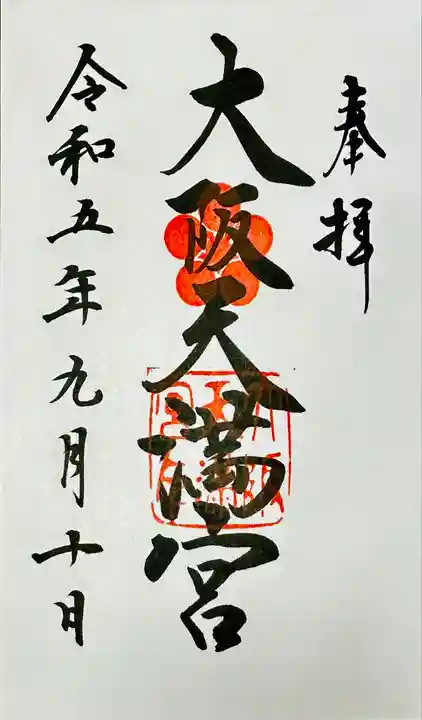 奉拝
大阪天満宮
令和五年九月十日